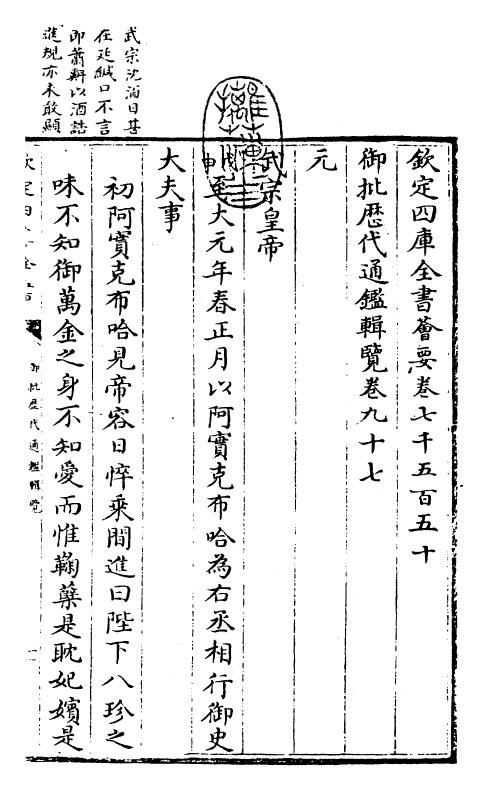 武宗沈湎日甚
在廷緘口不言
即蕭㪺以酒誥
進規亦未敢顯
欽定四庫全書薈要卷七千五百五十
御批歴代通鑑輯覽卷九十七
元
武宗皇帝
戊申至大元年春正月以阿實克布哈為右丞相行御史
大夫事
初阿實克布哈見帝容日悴乗間進曰陛下八珍之
味不知御萬金之身不知愛而惟鞠蘖是耽妃嬪是
御批歷代通鑑輯覽
一